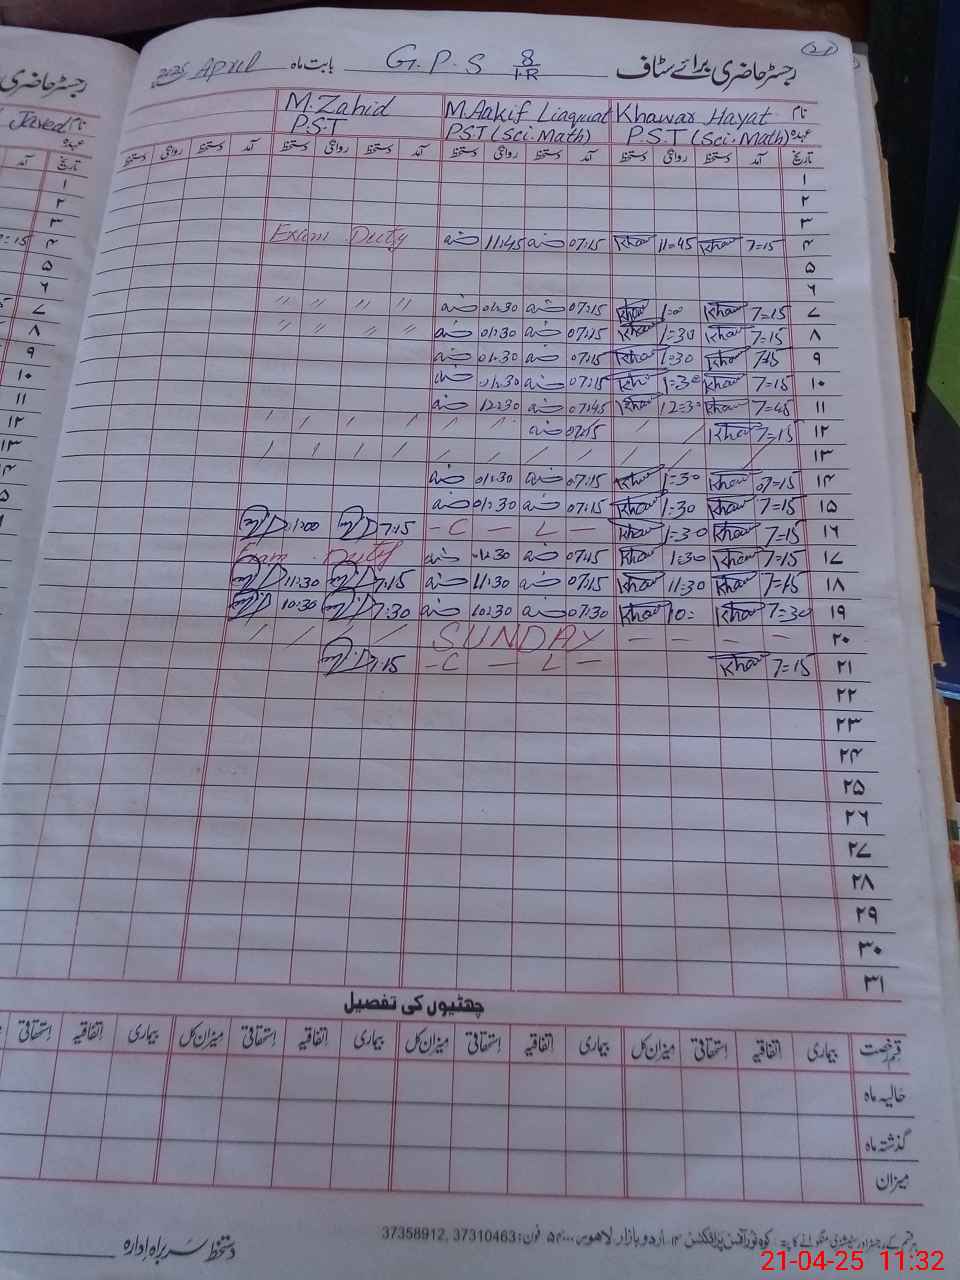 رجسٹر حاضری برائے سٹاف G.P.S 8/1.R بابت ماہ April 2025
(21)
نام Khawar Hayat M.Aakif Liaqwat M.Zahid
عہدہ PST (Sci.Math) PST (Sci.Math) P.S.T
تاریخ آمد دستخط روانگی دستخط آمد دستخط روانگی دستخط آمد دستخط روانگی دستخط آمد دستخط روانگی دستخط
۱
۲
۳
۴ 7=15 Khaw 11=45 Khaw 07:15 11:45 Exam Duty
۵
۶
۷ 7=15 Khaw 1=0 Khaw 07:15 01:30 " " " "
۸ 7=15 Khaw 1=30 Khaw 07:15 01:30 " " " "
۹ 7=15 Khaw 1=30 Khaw 07:15 01:30
۱۰ 7=15 Khaw 1=30 Khaw 07:15 01:30
۱۱ 7=45 Khaw 12=30 Khaw 07:45 12:30
۱۲ 7=15 Khaw / / 07:15 / / / / / /
۱۳ / / / / / / / / / / / /
۱۴ 07=15 Khaw 1=30 Khaw 07:15 01:30
۱۵ 7=15 Khaw 1:30 Khaw 07:15 01:30
۱۶ 7=15 Khaw 1=30 Khaw - C - L - 7:15 1:00
۱۷ 7=15 Khaw 1:30 Khaw 07:15 01:30 Exam Duty
۱۸ 7=15 Khaw 11=30 Khaw 07:15 11:30 7:15 11:30
۱۹ 7=30 Khaw 10= Khaw 07:30 10:30 7:30 10:30
۲۰ - - - - SUNDAY / / / /
۲۱ 7=15 Khaw - C - L - 7:15
۲۲
۲۳
۲۴
۲۵
۲۶
۲۷
۲۸
۲۹
۳۰
۳۱
چھٹیوں کی تفصیل
قسم رخصت بیماری اتفاقیہ استحقاقی میزان کل بیماری اتفاقیہ استحقاقی میزان کل بیماری اتفاقیہ استحقاقی میزان کل بیماری اتفاقیہ استحقاقی
حالیہ ماہ
گذشتہ ماہ
میزان
دستخط سربراہ ادارہ
کوہ نور آفس پراڈکٹس ۱۴۔اردو بازار لاہور فون: 37310463, 37358912
رجسٹر حاضری
نام Javed
عہدہ
تاریخ آمد
۱
۲
۳
۴
۵
۶
۷
۸
۹
۱۰
۱۱
۱۲
۱۳
21-04-25 11:32